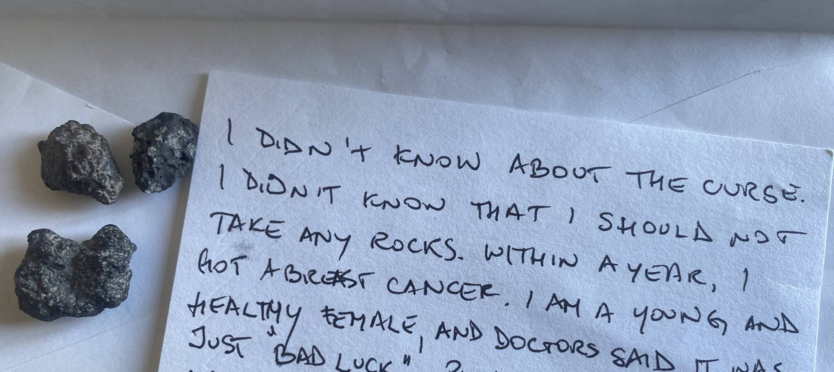 I DIDN'T KNOW ABOUT THE CURSE.
I DIDN'T KNOW THAT I SHOULD NOT
TAKE ANY ROCKS. WITHIN A YEAR, I
GOT A BREAST CANCER. I AM A YOUNG AND
HEALTHY FEMALE, AND DOCTORS SAID IT WAS
JUST "BAD LUCK"